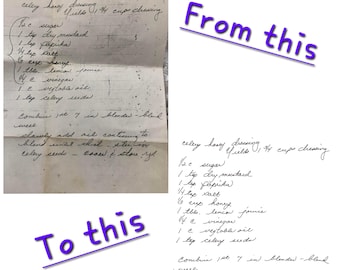 celery honey dressing
yields 1 3/4 cups dressing
1/2 c sugar
1 tsp dry mustard
1 tsp paprika
1/4 tsp salt
1/3 cup honey
1 tbl lemon juice
1/4 c vinegar
1 c vegetable oil
1 tsp celery seeds
combine 1st 7 in blender - blend
well
slowly add oil continuing to
blend until thick - stir in
celery seeds - cover & store rgt
From this
To this
celery honey dressing
yields 1 3/4 cups dressing
1/2 c sugar
1 tsp dry mustard
1 tsp paprika
1/4 tsp salt
1/3 cup honey
1 tbl lemon juice
1/4 c vinegar
1 c vegetable oil
1 tsp celery seeds
combine 1st 7 in blender - blend
well